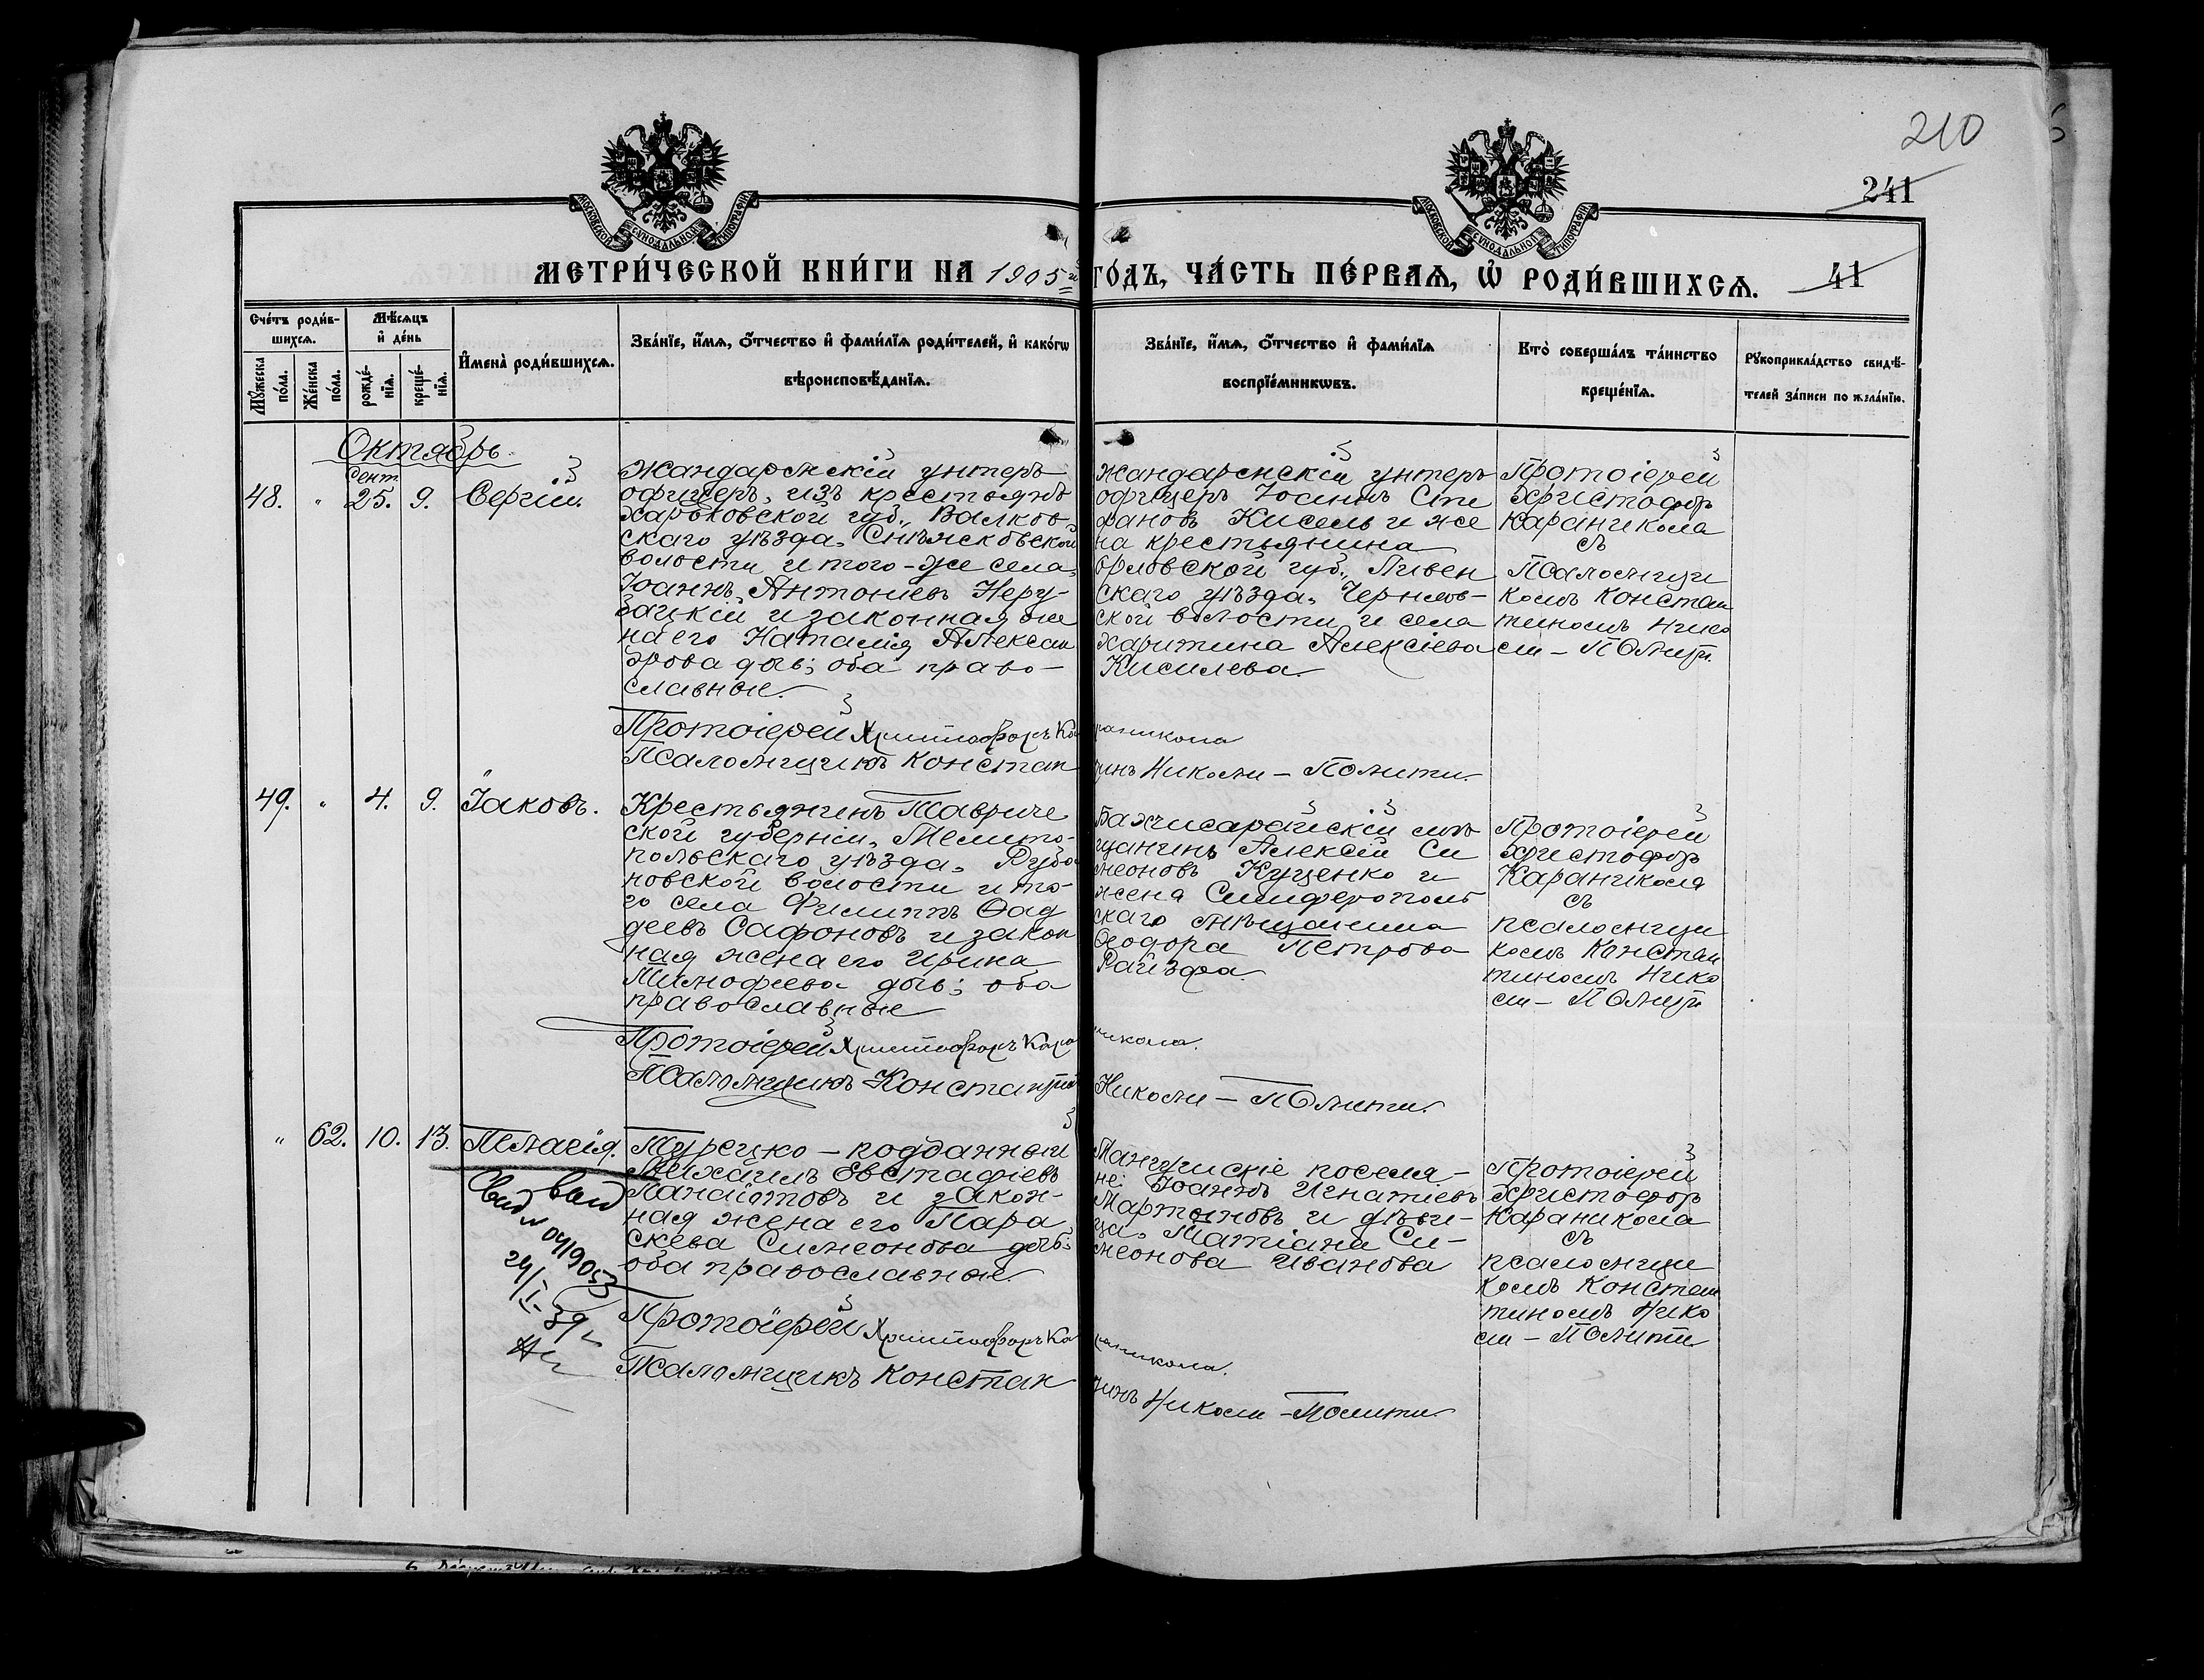 210
241
МОСКОВСКОЙ СѴНОДАЛЬНОЙ ТИПОГРАФІИ
МОСКОВСКОЙ СѴНОДАЛЬНОЙ ТИПОГРАФІИ
МЕТРИ́ЧЕСКОЙ КНИ́ГИ НА 1905й ГО́ДЪ, ЧА́СТЬ ПЕ́РВАѦ, Ѽ РОДИ́ВШИХСѦ. 41
Сче́тъ роди́в-
шихсѧ.
Мꙋ́жеска по́ла.
Же́нска по́ла.
Мѣ́сѧцъ
и҆ де́нь
рожде́-
нїѧ.
креще́-
нїѧ.
И҆мена̀ роди́вшихсѧ.
Зва́нїе, и҆́мѧ, ѻ҆́тчество и҆ фами́лїѧ роди́телей, и҆ како́гѡ
вѣроисповѣ́данїѧ.
Зва́нїе, и҆́мѧ, ѻ҆́тчество и҆ фами́лїѧ
воспрїе́мникѡвъ.
Кто̀ соверша́лъ та́инство
креще́нїѧ.
Рꙋкоприкла́дство свидѣ́-
телей за́писи по жела́нїю.
Октябрь
48. " Сент. 25. 9. Сергій.
Жандармскій унтеръ
офицеръ, изъ крестьянъ
Харьковской губ., Валков-
скаго уѣзда, Снѣжковской
волости и того-же села,
Іоаннъ Антоніевъ Неру-
бацкій и законная же
на его Наталія Алексан
дрова дочь; оба право-
славные.
Жандармскій унтеръ
офицеръ Іоаннъ Сте
фановъ Кисель и же
на крестьянина
Орловской губ., Ливен
скаго уѣзда, Чернав-
ской волости и села
Харитина Алексіева
Кисилева.
Протоіерей
Христофоръ
Караникола
съ
Псаломщи
комъ Констан
тиномъ Нико
ли-Помити.
Протоіерей Христофоръ Караникола
Псаломщикъ Константинъ Николи-Помити.
49. " 4. 9. Іаковъ.
Крестьянинъ Тавриче
ской губерніи, Мелито-
польскаго уѣзда, Рубо
новской волости и то-
го села Филиппъ Фад
деевъ Сафоновъ и закон
ная жена его Ирина
Тимофеева дочь; оба
православные
Бахчисарайскій мѣ
щанинъ Алексій Си
меоновъ Куценко и
жена Симферополь
скаго мѣщанина
Феодора Петрова
Протоіерей
Христофоръ
Караникола
съ
псаломщи
комъ Констан
тиномъ Нико
ли-Помити
Протоіерей Христофоръ Караникола.
Псаломщикъ Константинъ Николи-Помити.
" 62. 10. 13. Пелагія.
Турецко-подданный
Михаилъ Евстафіевъ
Панаіотовъ и закон-
ная жена его Пара
скева Симеонова дочь;
оба православные.
Мангушскіе поселя-
не: Іоаннъ Игнатіевъ
Мартыновъ и дѣви-
ца, Татіана Си-
меонова Иванова
Протоіерей
Христофоръ
Караникола
съ
псаломщи
комъ Констан
тиномъ Нико
ли-Помити
24/I-39
Протоіерей Христофоръ Караникола.
Псаломщикъ Константинъ Николи-Помити